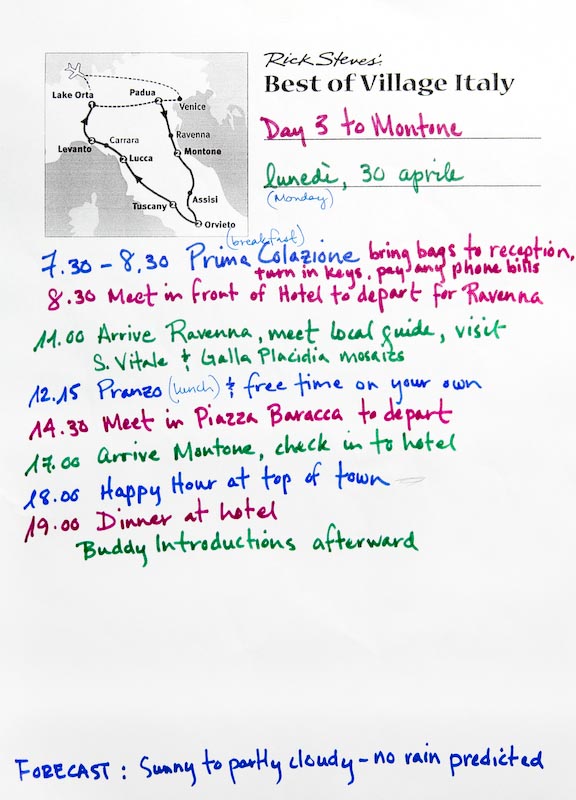 Rick Steves'
Best of Village Italy
Day 3 to Montone
lunedì, 30 aprile
(Monday)
Lake Orta
Padua
Venice
Ravenna
Carrara
Levanto
Montone
Lucca
Assisi
Tuscany
Orvieto
(breakfast)
7.30 - 8.30 Prima Colazione bring bags to reception,
turn in keys, pay any phone bills
8.30 Meet in front of Hotel to depart for Ravenna
11.00 Arrive Ravenna, meet local guide, visit
S. Vitale & Galla Placidia mosaics
12.15 Pranzo (lunch) & free time on your own
14.30 Meet in Piazza Baracca to depart
17.00 Arrive Montone, check in to hotel
18.00 Happy Hour at top of town
19.00 Dinner at hotel
Buddy Introductions afterward
FORECAST : Sunny to partly cloudy - no rain predicted